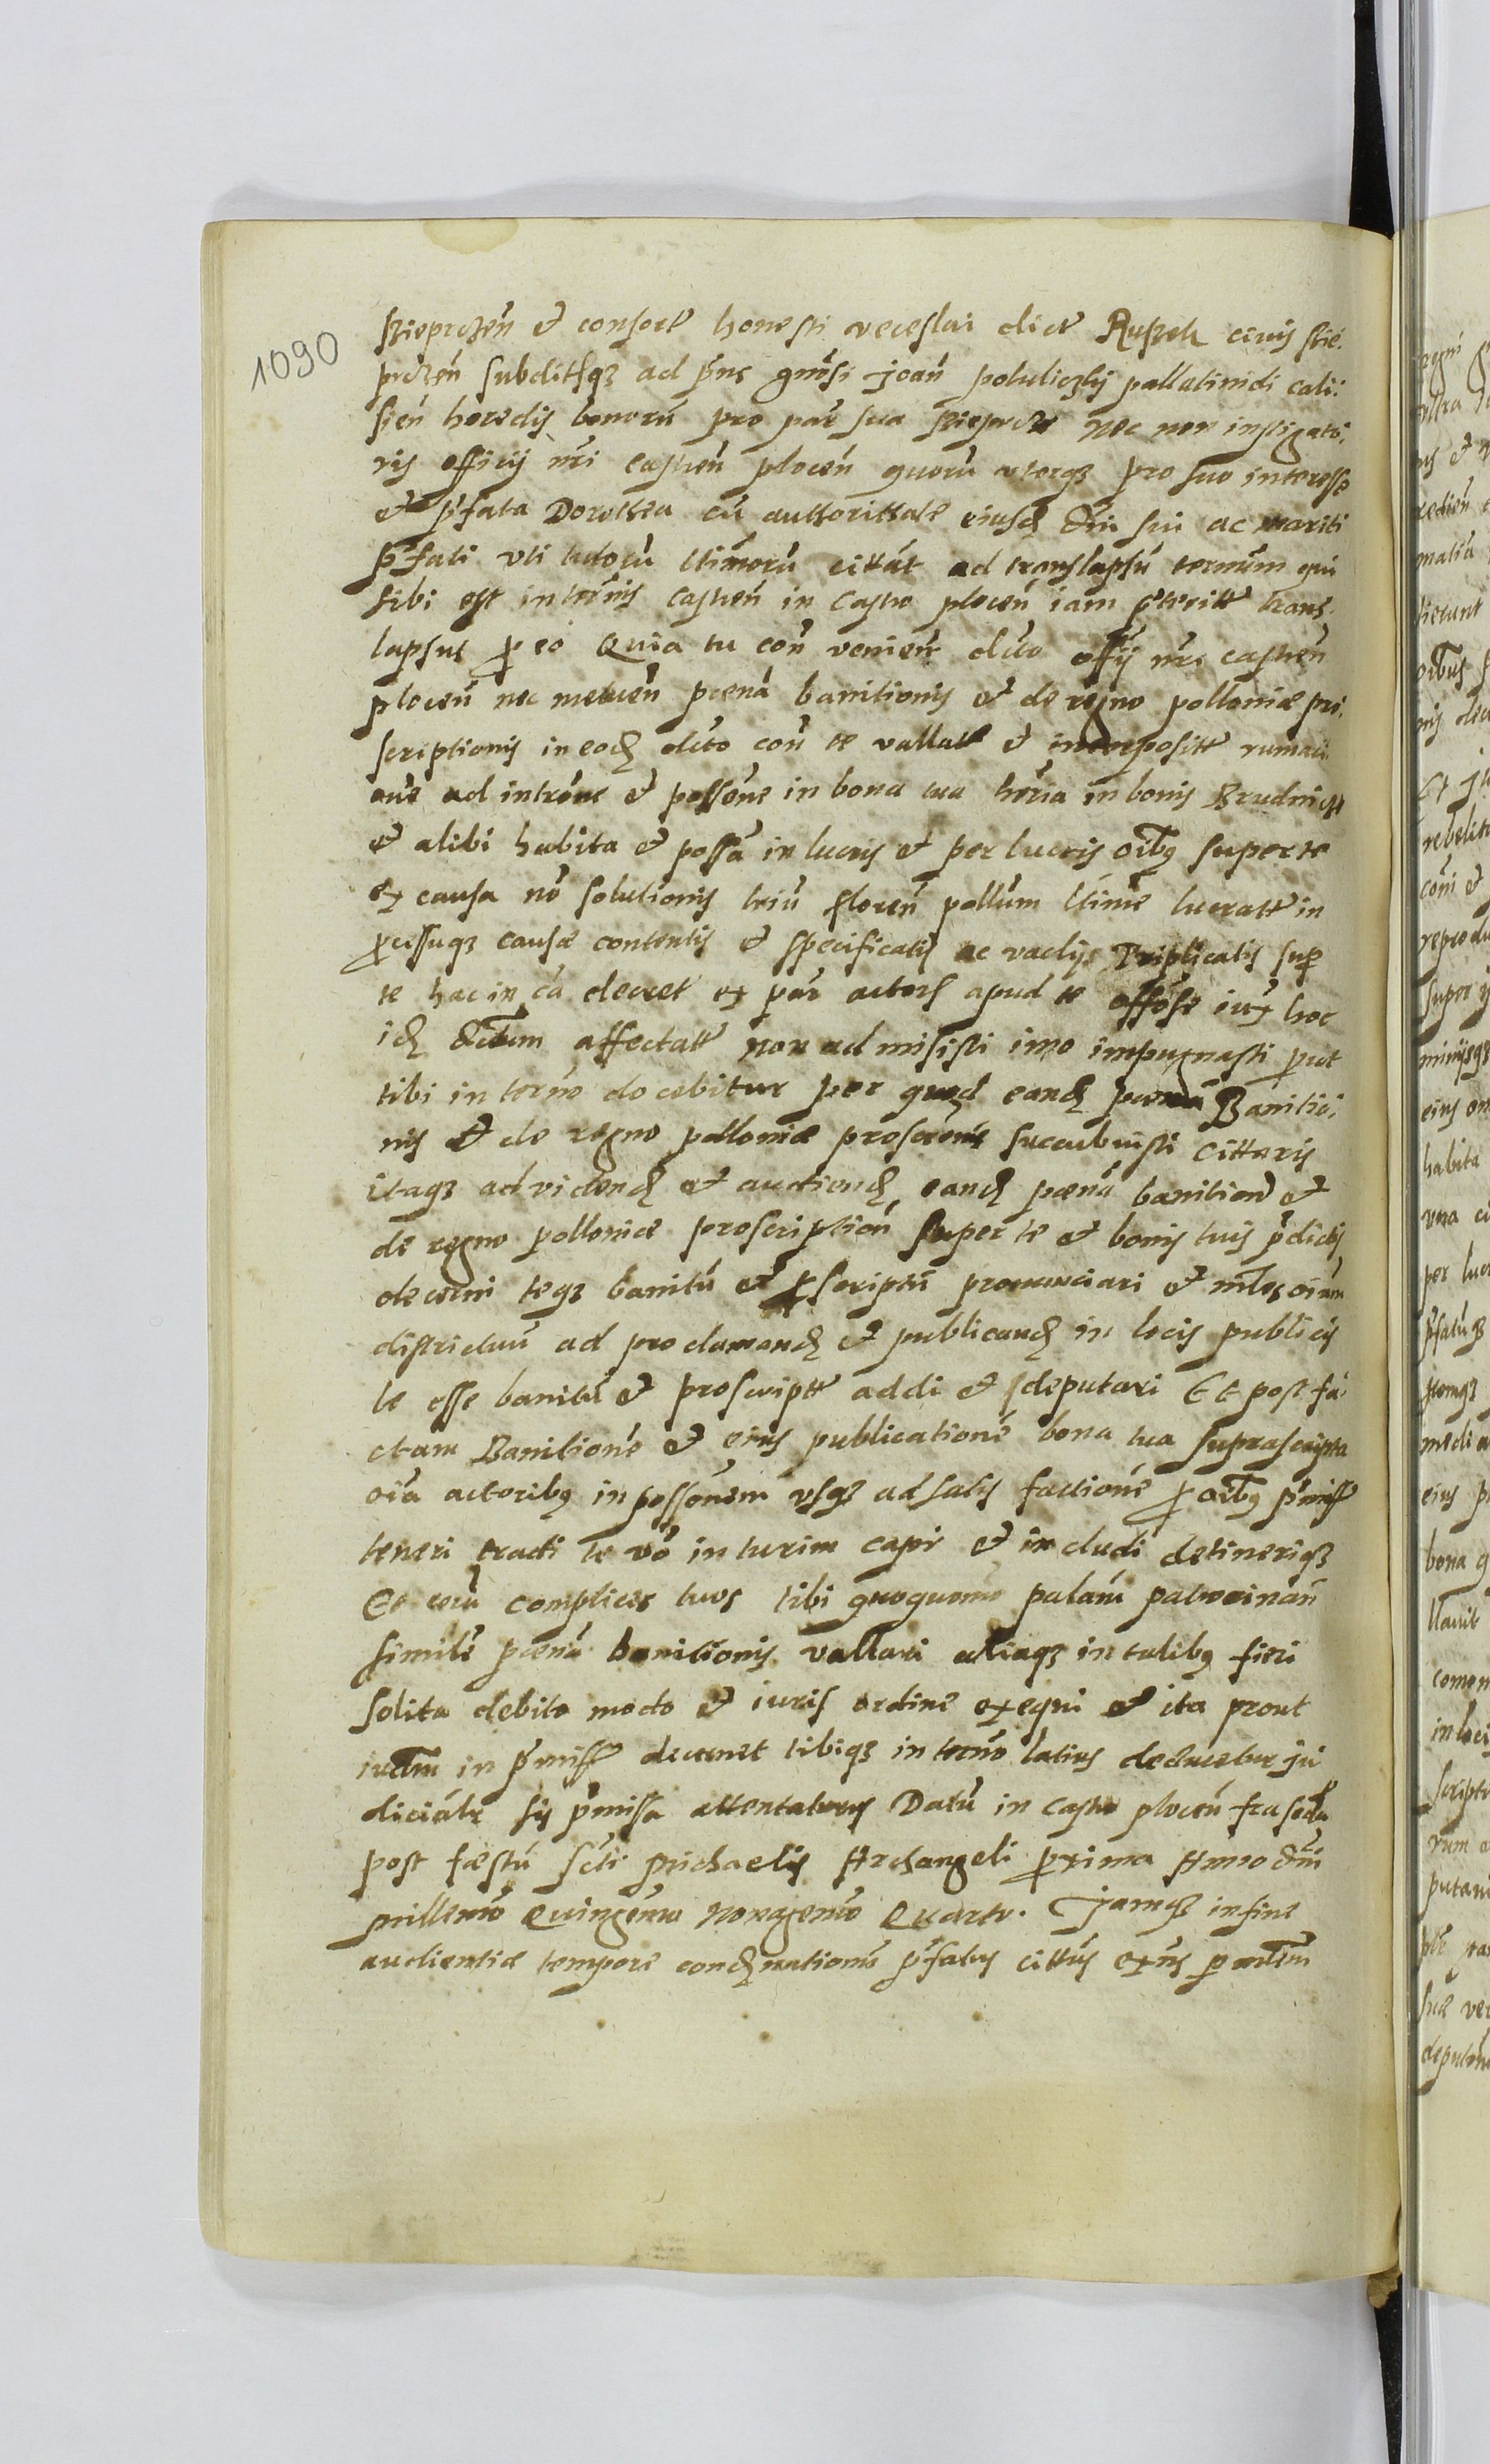 1090
Sieprczen̄ et consorte honesti veceslai dicte Ruszek civis Sie:
prczen̄ subditiqꝫ ad p̄ns gn̄osi Joan̄ potuliczkij pallatinidi cali:
sien̄ heredis bonorū pro par̄ sua Sieprcz Nec non instigato:
ris officij nr̄i castren̄ plocen̄ quorū vterqꝫ pro suo interesse
et p̄fata Dorothea cū authorittate eiusdꝫ dn̄i sui ac mariti
p̄fati vti tutoru ltimorū cittāt ad translapsū termīnum qui
tibi est in termīs castren̄ in Castro plocen̄ iam p̄teritt trans:
lapsus ꝓ eo Quia tu con̄ venien̄ dicto offij nr̄i castren̄
plocen̄ nec metuen̄ pœnā banitionis et de regno polloniæ pro:
scriptionis in eodꝫ dicto con̄ te vallatt et interpositt rumati
one ad intrōne et possōne in bona tua hœr̄ia in bonis Brudnicze
et alibi habita et possā in lucris et per lucris oībꝫ super te
ex causa nō solutionis triū floren̄ pollum ltime lucratt in
ꝓcessuqꝫ causæ contentis et specificatis ac vadijs Triplicatis sup
te hac in cā decret ex par̄ actors apud te offōse iux hoc
idꝫ dictum affectatt non admisisti imo impugnasti ꝓut
tibi in termō docebitur per quod eandꝫ pœnā Banitio:
nis et de regno polloniæ proscrōnis succubuisti cittaris
itaqꝫ ad videndꝫ et audiendꝫ eandꝫ pœnā banitionē et
de regno polloniæ proscriptiōn super te et bonis tuis p̄dictis
decerni teqꝫ banitū et ꝓscriptū pronunciari et mīles oīum
districtuū ad proclamandꝫ et publicandꝫ in locis publicis
te esse banitū et proscriptt addi et deputari Et post fa:
ctam Banitionē et eius publicationē bona tua suprascripta
oīa actoribꝫ in possōnem vsqꝫ ad satis factionē ꝓ oībꝫ p̄miss
teneri tradi te vō in turim capi et includi detineriqꝫ
Et cotū complices tuos tibi quoquomō palam patrocinan̄
similē pœnā banitionis vallari aliaqꝫ in talibꝫ fieri
solita debito modo et iuris ordine exequi et ita prout
iudm̄ in p̄miss decernet tibiqꝫ in termō latius deducetur ju
dicialr̄ sis p̄missa attentaturus Datū in castro plocen̄ fra secda
post fæstū scti Michaelis Archangeli ꝓxima Anno dnī
millemō Quingēmo Nonagemō Quarto. Jamqꝫ in fine
audientiæ tempore condꝫnationū p̄fatus cittus exn̄s ꝑ mltm̄